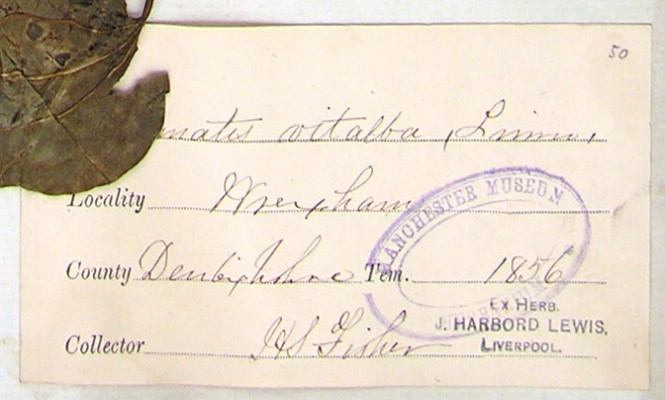 50
matis vitalba, Linn.
Locality Wrexham
County Denbighshire Tem. 1856
Collector HS Fisher
MANCHESTER MUSEUM
EX HERB.
J. HARBORD LEWIS,
LIVERPOOL.